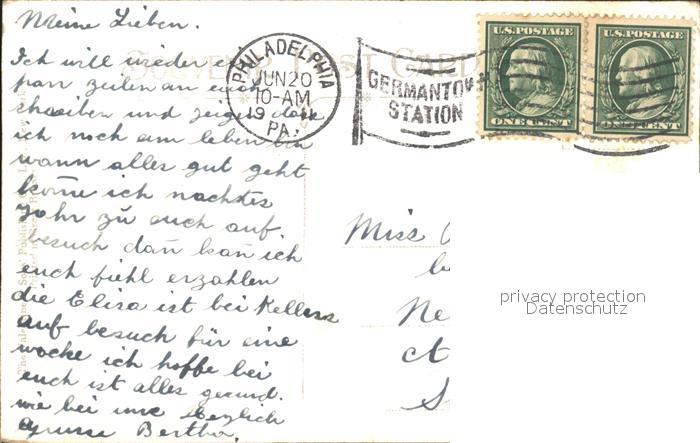 Meine Lieben.
Ich will wieder ein
par zeilen an euch
shreiben und zeigen das
ich noch am leben bin
wann alles gut geht
kome ich nachstes
Jahr zu euch auf.
besuch dañ kañ ich
euch fiehl erzahlen
die Elisa ist bei Kellers
auf besuch für eine
woche ich hoffe bei
euch ist alles gesund.
wie bei uns Herzlich
Grusse Bertha.
SOUVENIR POST CARD
PHILADELPHIA
JUN 20
10-AM
19 11
PA.
GERMANTOWN
STATION
U.S. POSTAGE
ONE CENT
U.S. POSTAGE
ONE CENT
Miss
Ne
S
privacy protection
Datenschutz